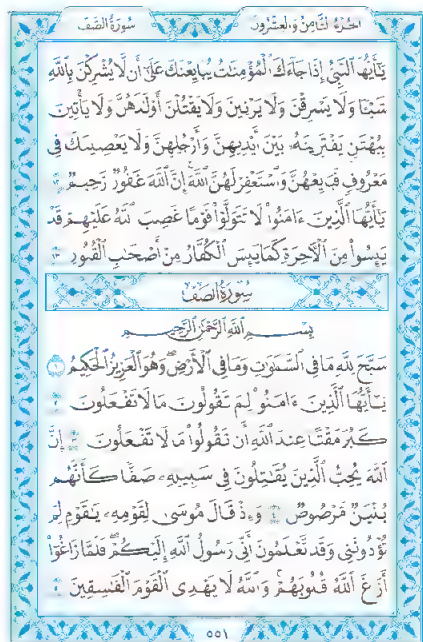 الجزء الثامن والعشرون
سورة الصف
يَٰٓأَيُّهَا ٱلنَّبِىُّ إِذَا جَآءَكَ ٱلْمُؤْمِنَٰتُ يُبَايِعْنَكَ عَلَىٰٓ أَن لَّا يُشْرِكْنَ بِٱللَّهِ
شَيْـًٔا وَلَا يَسْرِقْنَ وَلَا يَزْنِينَ وَلَا يَقْتُلْنَ أَوْلَٰدَهُنَّ وَلَا يَأْتِينَ
بِبُهْتَٰنٍ يَفْتَرِينَهُۥ بَيْنَ أَيْدِيهِنَّ وَأَرْجُلِهِنَّ وَلَا يَعْصِينَكَ فِى
مَعْرُوفٍ فَبَايِعْهُنَّ وَٱسْتَغْفِرْ لَهُنَّ ٱللَّهَ إِنَّ ٱللَّهَ غَفُورٌ رَّحِيمٌ ١٢
يَٰٓأَيُّهَا ٱلَّذِينَ ءَامَنُوا۟ لَا تَتَوَلَّوْا۟ قَوْمًا غَضِبَ ٱللَّهُ عَلَيْهِمْ قَدْ
يَئِسُوا۟ مِنَ ٱلْـَٔاخِرَةِ كَمَا يَئِسَ ٱلْكُفَّارُ مِنْ أَصْحَٰبِ ٱلْقُبُورِ ١٣
سورة الصف
بِسْمِ ٱللَّهِ ٱلرَّحْمَٰنِ ٱلرَّحِيمِ
سَبَّحَ لِلَّهِ مَا فِى ٱلسَّمَٰوَٰتِ وَمَا فِى ٱلْأَرْضِ وَهُوَ ٱلْعَزِيزُ ٱلْحَكِيمُ ١
يَٰٓأَيُّهَا ٱلَّذِينَ ءَامَنُوا۟ لِمَ تَقُولُونَ مَا لَا تَفْعَلُونَ ٢
كَبُرَ مَقْتًا عِندَ ٱللَّهِ أَن تَقُولُوا۟ مَا لَا تَفْعَلُونَ ٣ إِنَّ
ٱللَّهَ يُحِبُّ ٱلَّذِينَ يُقَٰتِلُونَ فِى سَبِيلِهِۦ صَفًّا كَأَنَّهُم
بُنْيَٰنٌ مَّرْصُوصٌ ٤ وَإِذْ قَالَ مُوسَىٰ لِقَوْمِهِۦ يَٰقَوْمِ لِمَ
تُؤْذُونَنِى وَقَد تَّعْلَمُونَ أَنِّى رَسُولُ ٱللَّهِ إِلَيْكُمْ فَلَمَّا زَاغُوٓا۟
أَزَاغَ ٱللَّهُ قُلُوبَهُمْ وَٱللَّهُ لَا يَهْدِى ٱلْقَوْمَ ٱلْفَٰسِقِينَ ٥
٥٥١